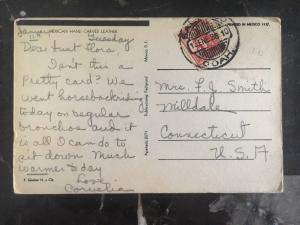 MEXICAN HAND CARVED LEATHER
PRINTED IN MEXICO
Tuesday
Dear Aunt Flora,
Isn't this a
pretty card? We
went horsebackriding
today on regular
bronchos and it
is all I can do to
sit down. Much
warmer today
Love,
Cornelia
Mrs. F. J. Smith
Milldale
Connecticut
U.S.A